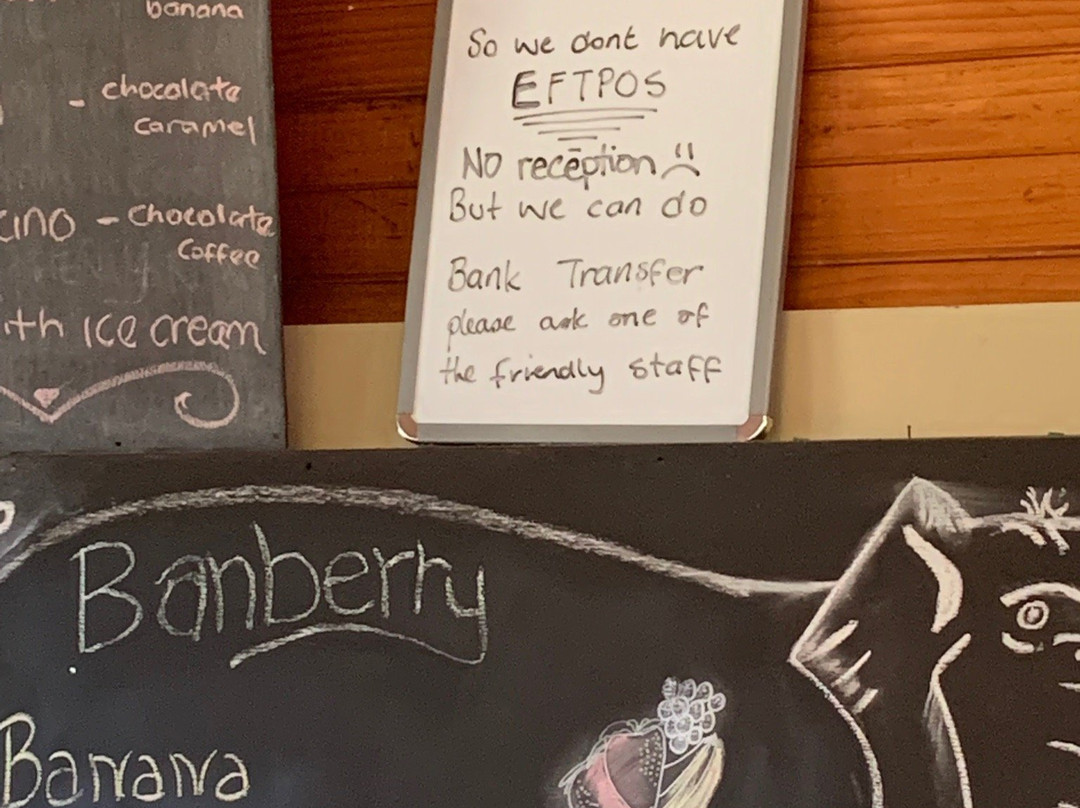 banana
- chocolate
caramel
- chocolate
coffee
ice cream
So we dont have
EFTPOS
No reception
But we can do
Bank Transfer
please ask one of
the friendly staff
Banberry
Banana